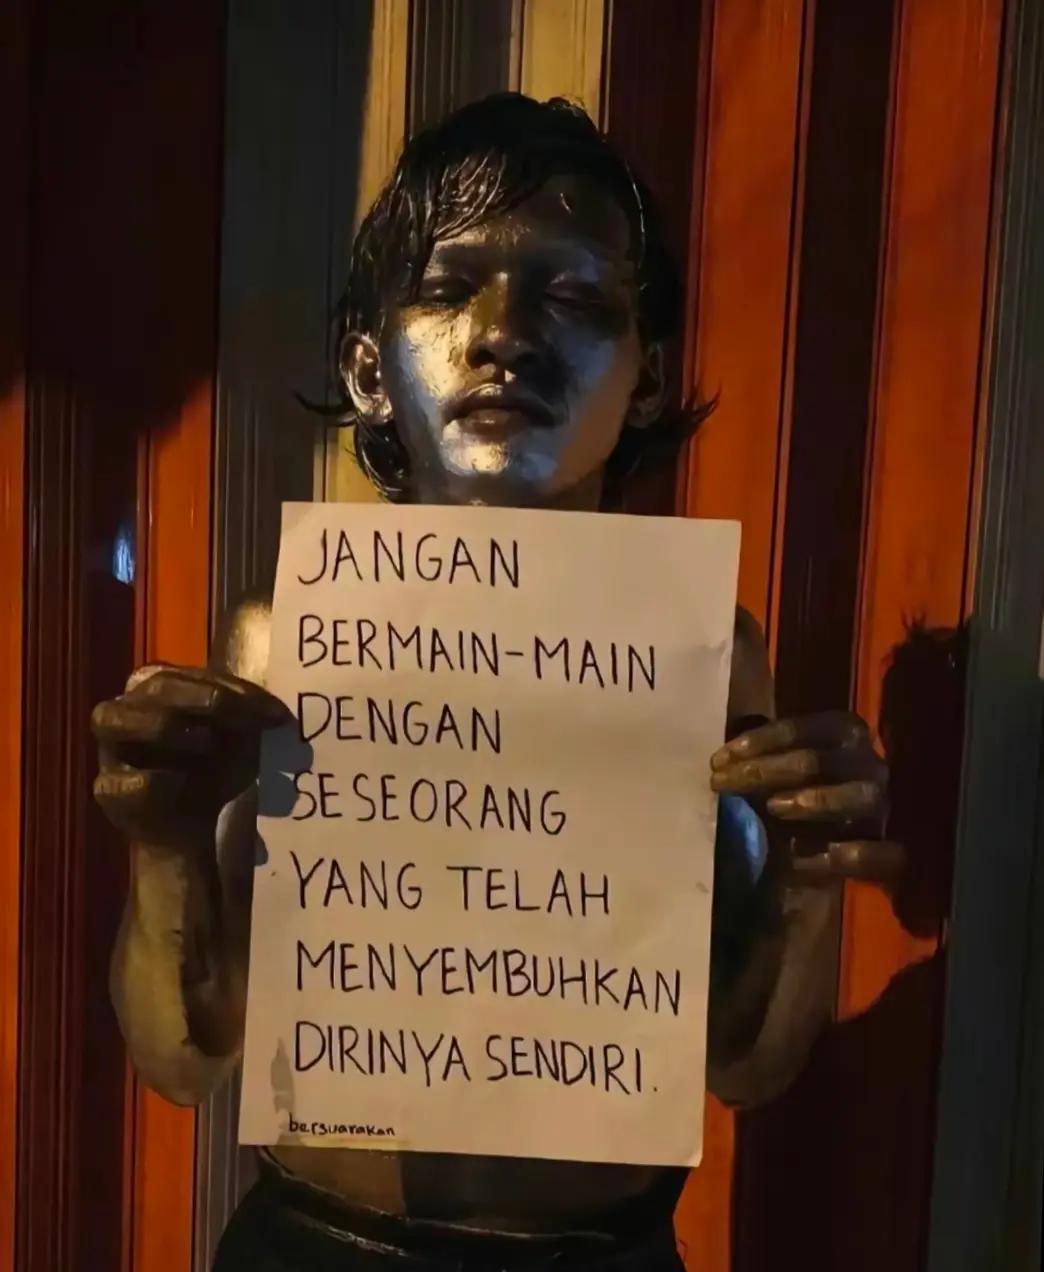 JANGAN
BERMAIN-MAIN
DENGAN
SESEORANG
YANG TELAH
MENYEMBUHKAN
DIRINYA SENDIRI.
bersuarakan